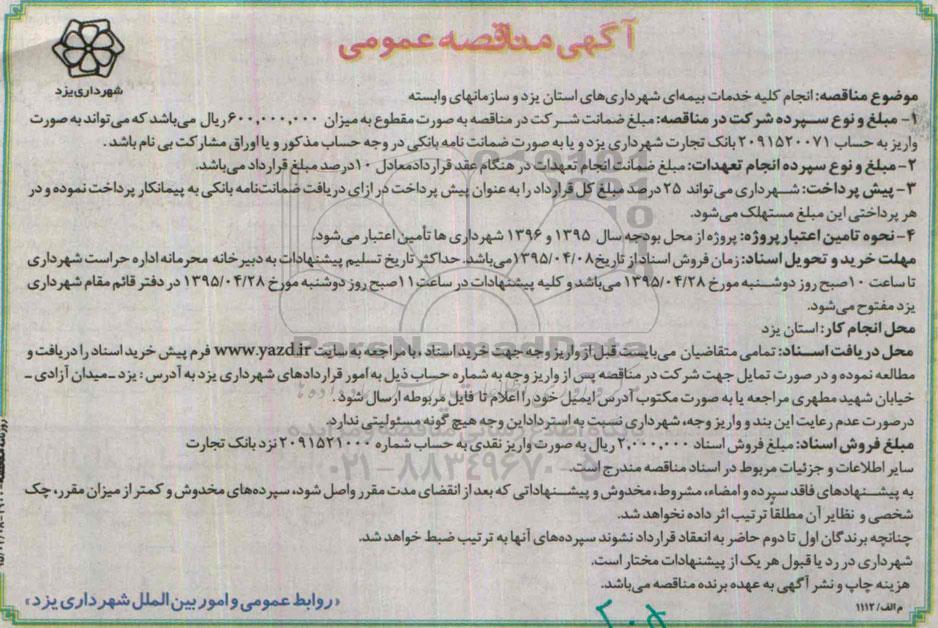 آگهی مناقصه عمومی
شهرداری یزد
موضوع مناقصه: انجام کلیه خدمات بیمه‌ای شهرداری‌های استان یزد و سازمانهای وابسته
۱- مبلغ و نوع سپرده شرکت در مناقصه: مبلغ ضمانت شرکت در مناقصه به صورت مقطوع به میزان ۶۰۰,۰۰۰,۰۰۰ ریال می‌باشد که می‌تواند به صورت
واریز به حساب ۲۰۹۱۵۲۰۰۷۱ بانک تجارت شهرداری یزد و یا به صورت ضمانت نامه بانکی در وجه حساب مذکور و یا اوراق مشارکت بی نام باشد.
۲- مبلغ و نوع سپرده انجام تعهدات: مبلغ ضمانت انجام تعهدات در هنگام عقد قرارداد معادل ۱۰درصد مبلغ قرارداد می‌باشد.
۳- پیش پرداخت: شهرداری می‌تواند ۲۵ درصد مبلغ کل قرارداد را به عنوان پیش پرداخت در ازای دریافت ضمانت‌نامه بانکی به پیمانکار پرداخت نموده و در
هر پرداختی این مبلغ مستهلک می‌شود.
۴- نحوه تامین اعتبار پروژه: پروژه از محل بودجه سال ۱۳۹۵ و ۱۳۹۶ شهرداری ها تأمین اعتبار می‌شود.
مهلت خرید و تحویل اسناد: زمان فروش اسناد از تاریخ ۱۳۹۵/۰۴/۰۸ می‌باشد. حداکثر تاریخ تسلیم پیشنهادات به دبیرخانه محرمانه اداره حراست شهرداری
تا ساعت ۱۰ صبح روز دوشنبه مورخ ۱۳۹۵/۰۴/۲۸ می‌باشد و کلیه پیشنهادات در ساعت ۱۱ صبح روز دوشنبه مورخ ۱۳۹۵/۰۴/۲۸ در دفتر قائم مقام شهرداری
یزد مفتوح می‌شود.
محل انجام کار: استان یزد
محل دریافت اسناد: تمامی متقاضیان می‌بایست قبل از واریز وجه جهت خرید اسناد، با مراجعه به سایت www.yazd.ir فرم پیش خرید اسناد را دریافت و
مطالعه نموده و در صورت تمایل جهت شرکت در مناقصه پس از واریز وجه به شماره حساب ذیل به امور قراردادهای شهرداری یزد به آدرس: یزد - میدان آزادی -
خیابان شهید مطهری مراجعه یا به صورت مکتوب آدرس ایمیل خود را اعلام تا فایل مربوطه ارسال شود.
درصورت عدم رعایت این بند و واریز وجه، شهرداری نسبت به استرداد این وجه هیچ گونه مسئولیتی ندارد.
مبلغ فروش اسناد: مبلغ فروش اسناد ۲,۰۰۰,۰۰۰ ریال به صورت واریز نقدی به حساب شماره ۲۰۹۱۵۲۱۰۰۰ نزد بانک تجارت
سایر اطلاعات و جزئیات مربوط در اسناد مناقصه مندرج است.
به پیشنهادهای فاقد سپرده و امضاء، مشروط، مخدوش و پیشنهاداتی که بعد از انقضای مدت مقرر واصل شود، سپرده‌های مخدوش و کمتر از میزان مقرر، چک
شخصی و نظایر آن مطلقاً ترتیب اثر داده نخواهد شد.
چنانچه برندگان اول تا دوم حاضر به انعقاد قرارداد نشوند سپرده‌های آنها به ترتیب ضبط خواهد شد.
شهرداری در رد یا قبول هر یک از پیشنهادات مختار است.
هزینه چاپ و نشر آگهی به عهده برنده مناقصه می‌باشد.
م الف/ ۱۱۱۲
«روابط عمومی و امور بین الملل شهرداری یزد»
ParsNamadData
۰۲۱-۸۸۳۴۹۶۷۰
۲۰۵